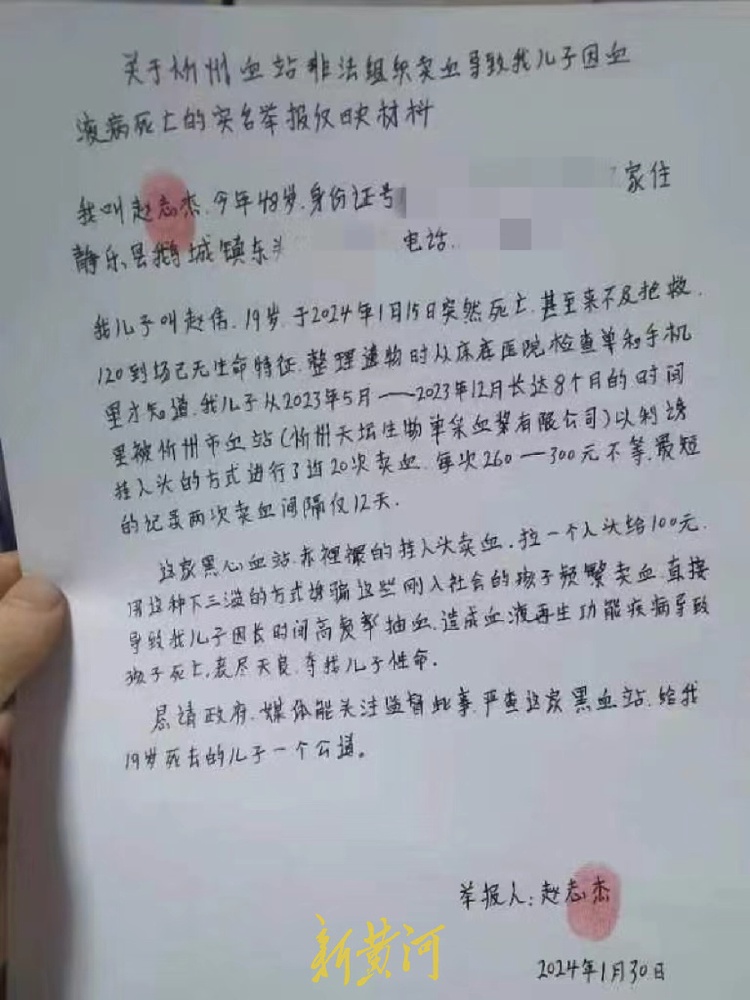 关于忻州血站非法组织卖血导致我儿子因血
液病死亡的实名举报反映材料
我叫赵志杰.今年48岁.身份证号 家住
静乐县鹅城镇东 电话.
我儿子叫赵伟.19岁.于2024年1月15日突然死亡.甚至来不及抢救.
120到场已无生命特征.整理遗物时从床底医院检查单和手机
里才知道.我儿子从2023年5月——2023年12月长达8个月的时间
里被忻州市血站(忻州天坛生物单采血浆有限公司)以利诱
挂人头的方式进行了近20次卖血.每次260—300元不等.最短
的记录两次卖血间隔仅12天.
这家黑心血站.赤裡裡的挂人头卖血.拉一个人头给100元.
用这种下三滥的方式诱骗这些刚入社会的孩子频繁卖血.直接
导致我儿子因长时间高复率抽血.造成血液再生功能疾病导致
孩子死亡.丧尽天良.夺我儿子性命.
恳请政府.媒体能关注监督此事.严查这家黑血站.给我
19岁死去的儿子一个公道。
举报人:赵志杰
新黄河
2024年1月30日